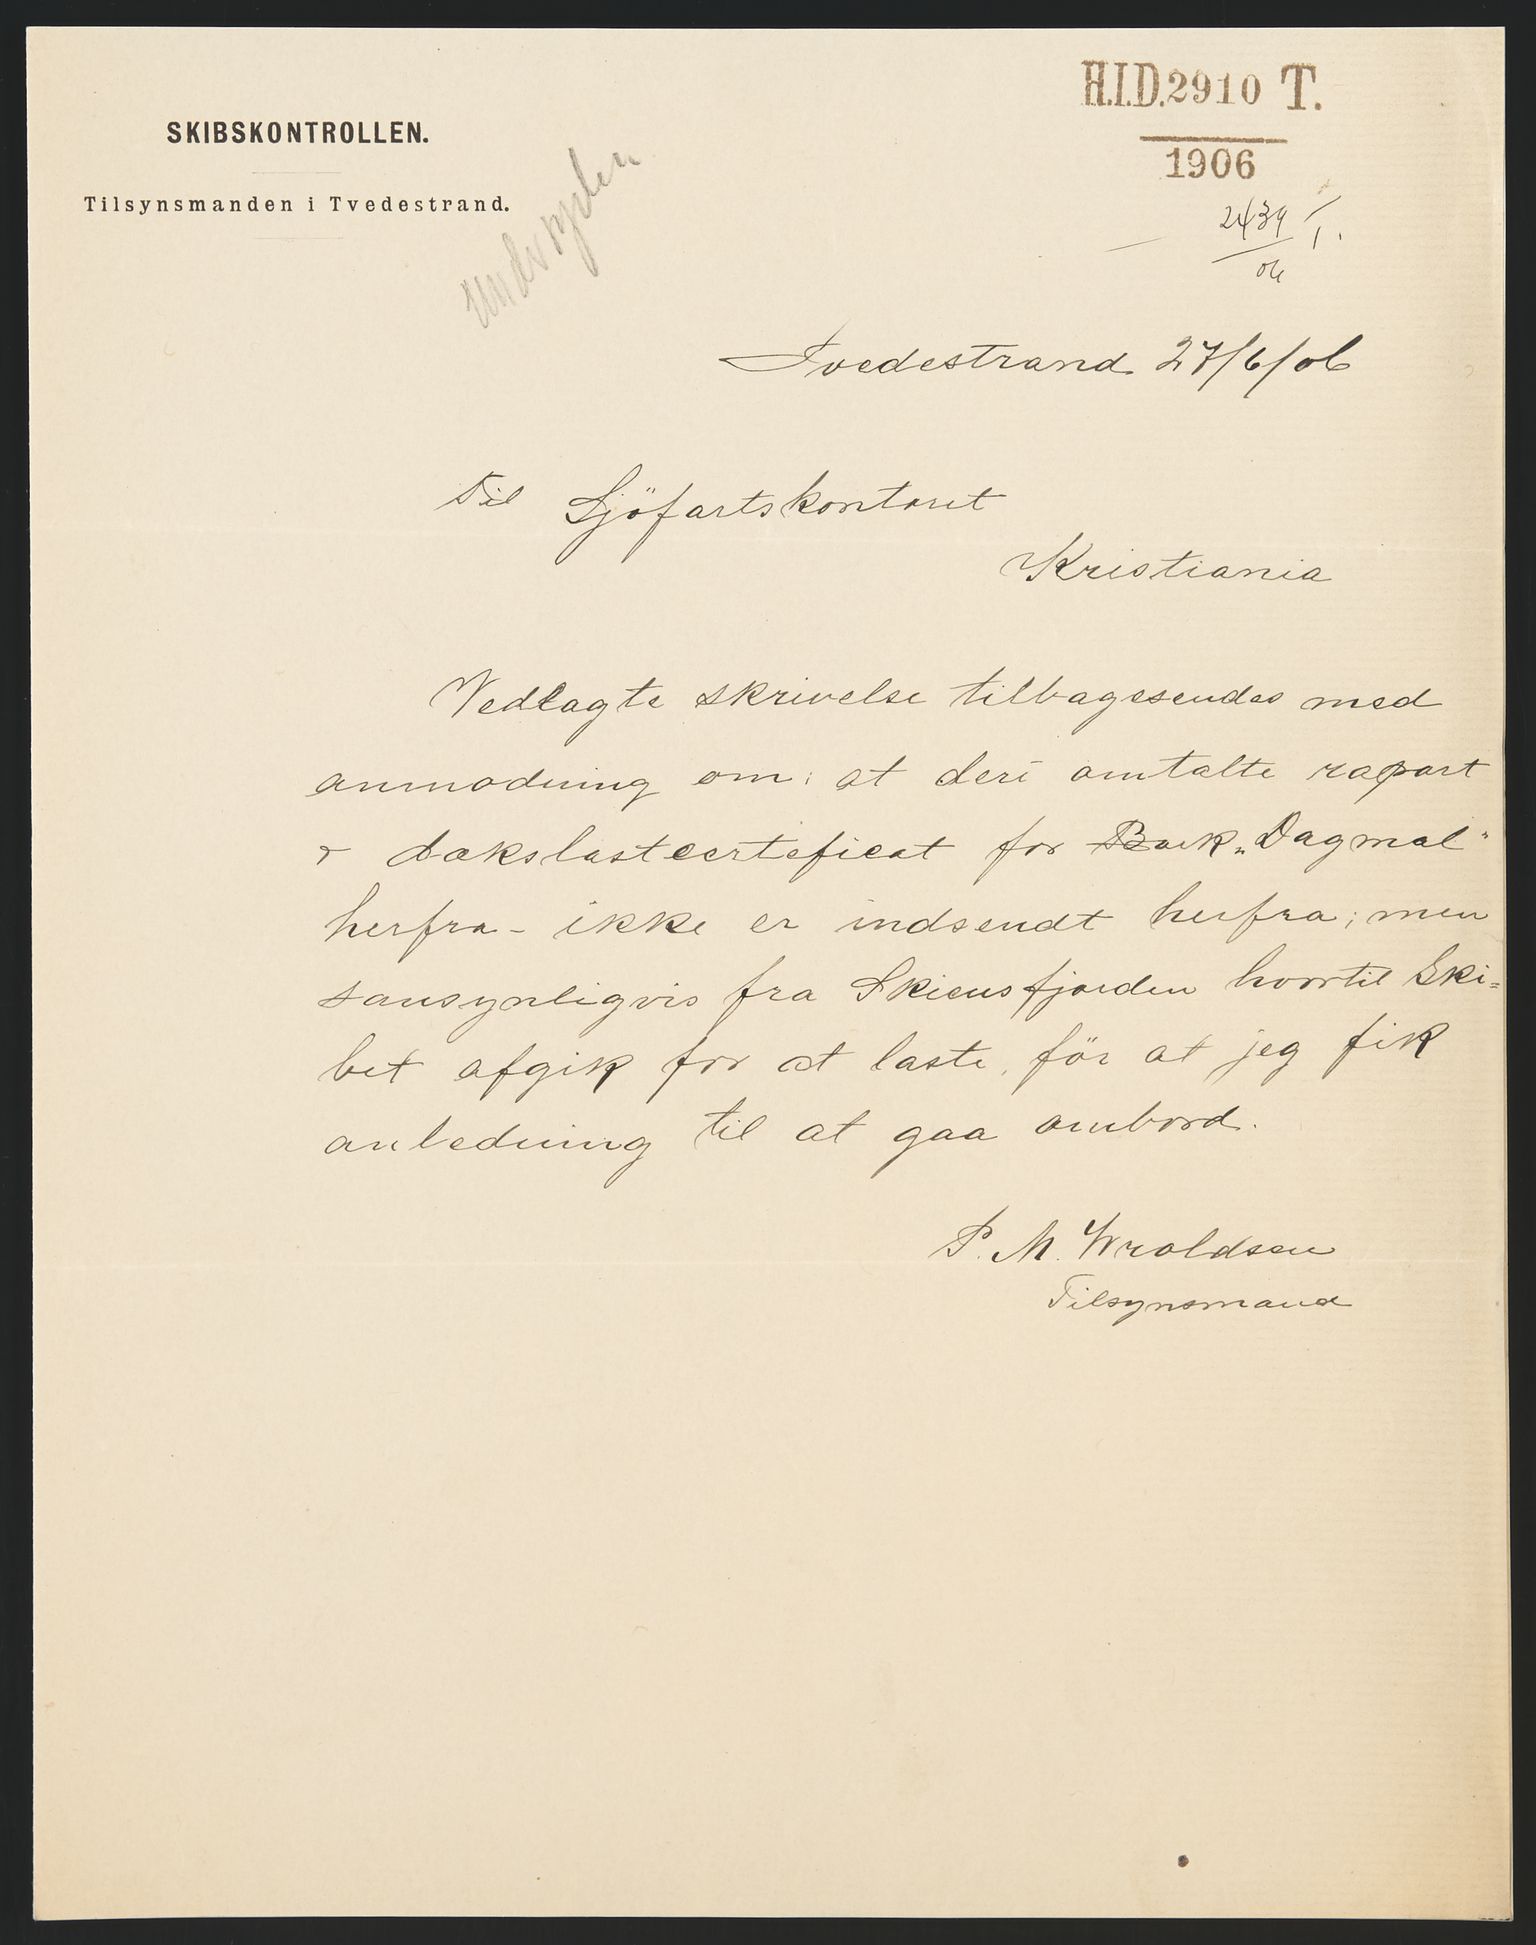 H.I.D. 2910 T.
1906
SKIBSKONTROLLEN.
Tilsynsmanden i Tvedestrand.
2439 T.
06
Tvedestrand 27/6/06
Til Sjöfartskontoret
Kristiania
Vedlagte skrivelse tilbagesendes med
anmodning om: at deri omtalte raport
& dækslastcerteficat for Bark „Dagmal"
herfra - ikke er indsendt herfra; men
sansynligvis fra Skiensfjorden hvortil Ski=
bet afgik for at laste, för at jeg fik
anledning til at gaa ombord.
P. M. Wroldsen
Tilsynsmand